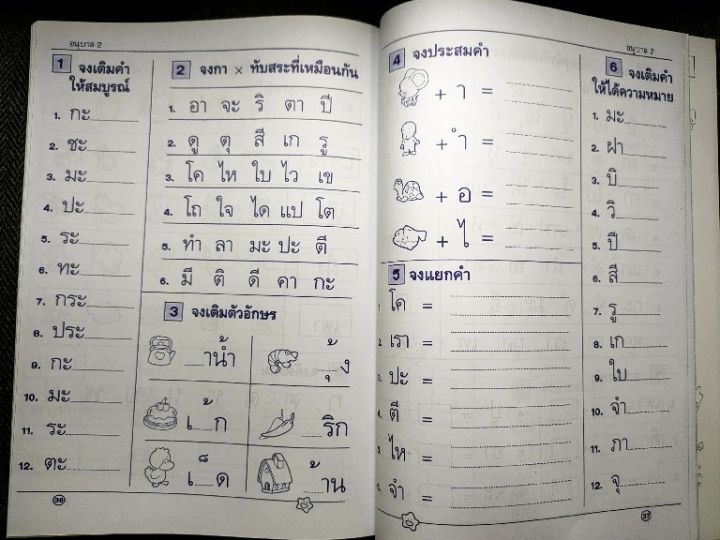 อนุบาล 2
1 จงเติมคำ
ให้สมบูรณ์
1. กะ
2. ชะ
3. มะ
4. ปะ
5. ระ
6. ทะ
7. กระ
8. ประ
9. กะ
10. มะ
11. ระ
12. ตะ
2 จงกา × ทับสระที่เหมือนกัน
1. อา จะ ริ ตา ปี
2. ดู ตุ สี เก รู
3. โค ไห ใบ ไว เข
4. โถ ใจ ได แป โต
5. ทำ ลา มะ ปะ ตี
6. มี ติ ดี คา กะ
3 จงเติมตัวอักษร
...าน้ำ
...ุ้ง
เ...้ก
...ริก
เ...็ด
...้าน
36
4 จงประสมคำ
+ า =
+ ำ =
+ อ =
+ ไ =
5 จงแยกคำ
1. โค =
2. เรา =
3. ปะ =
4. ตี =
5. ไห =
6. จำ =
อนุบาล 2
6 จงเติมคำ
ให้ได้ความหมาย
1. มะ
2. ฝา
3. บิ
4. วิ
5. ปี
6. สี
7. รู
8. เก
9. ใบ
10. จำ
11. ภา
12. จุ
37